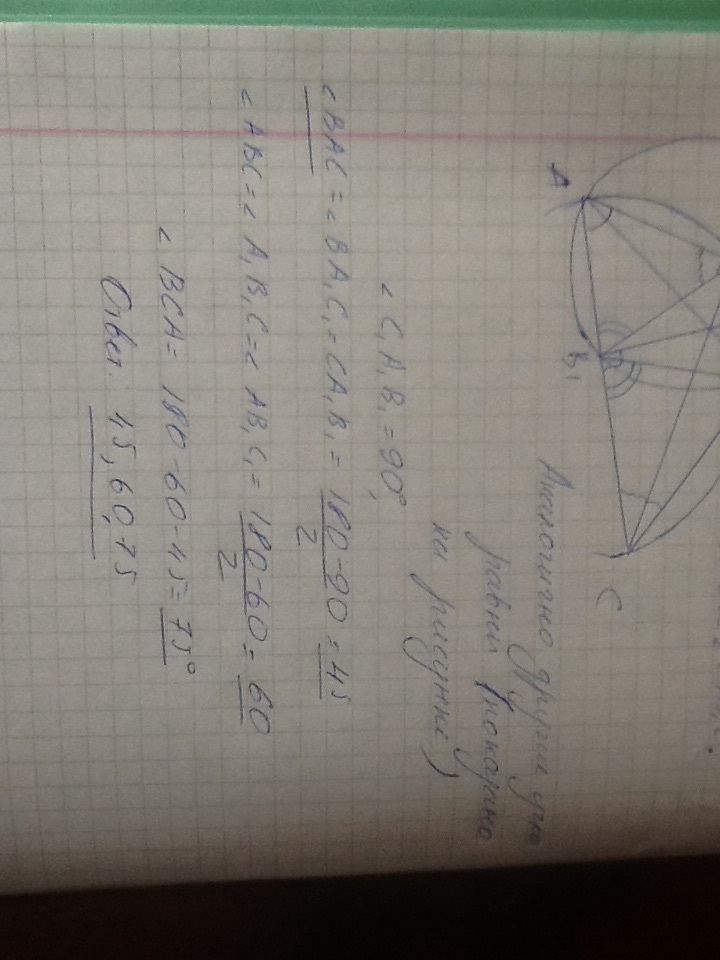 A
B₁
C
Аналогично другие углы
равны (показано
на рисунке)
∠ C₁A₁B₁ = 90°,
∠ BAC = ∠ BA₁C₁ = CA₁B₁ = 180-90 / 2 = 45
∠ ABC = ∠ A₁B₁C = ∠ AB₁C₁ = 180-60 / 2 = 60
∠ BCA = 180-60-45 = 75°
Ответ: 45, 60, 75